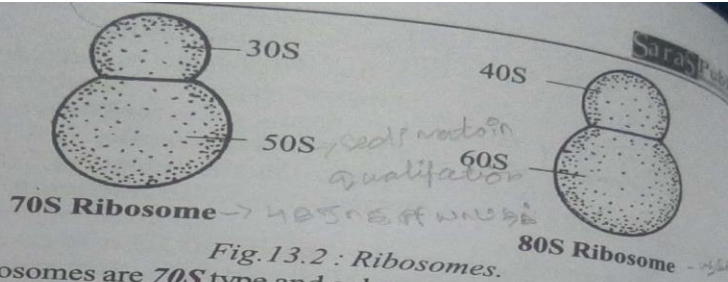 Saras Pub
30S
40S
50S
60S
70S Ribosome
80S Ribosome
Fig.13.2 : Ribosomes.
osomes are 70S type and